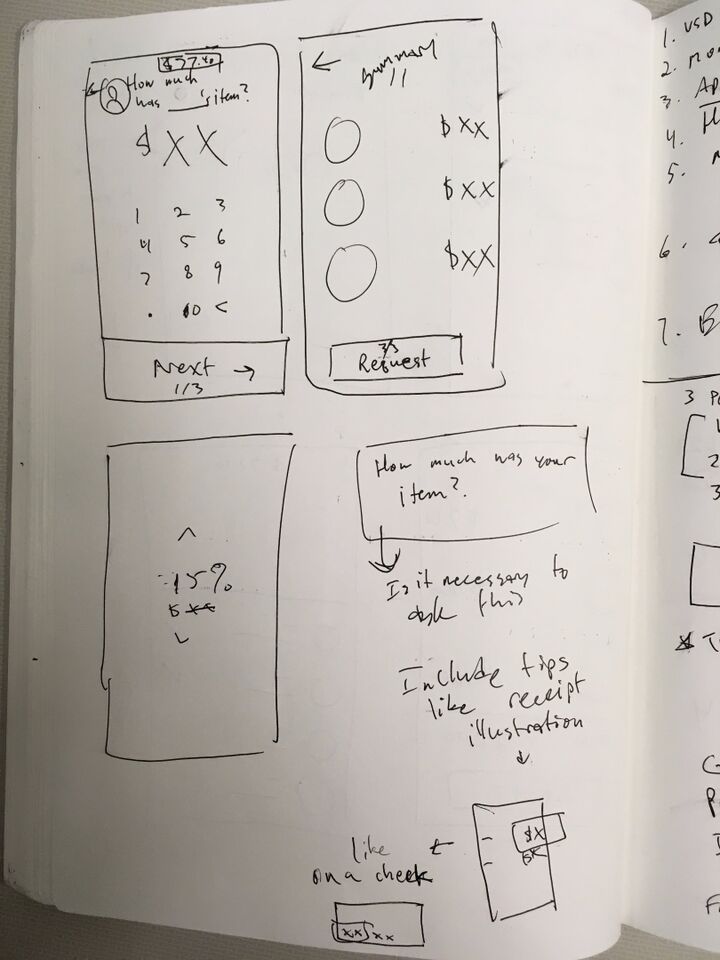 How much
was ___'s item?
$ XX
1 2 3
4 5 6
7 8 9
. 0 <
Next →
1/3
←
Summary
$XX
$XX
$XX
3/3
Request
^
15%
How much was your
item?
Is it necessary to
ask this
Include tips
like receipt
illustration
↓
$X
like
on a check
XX XX
1. USD
2. Mo
3. Ap
4.
5.
6.
7. B
3
2
3